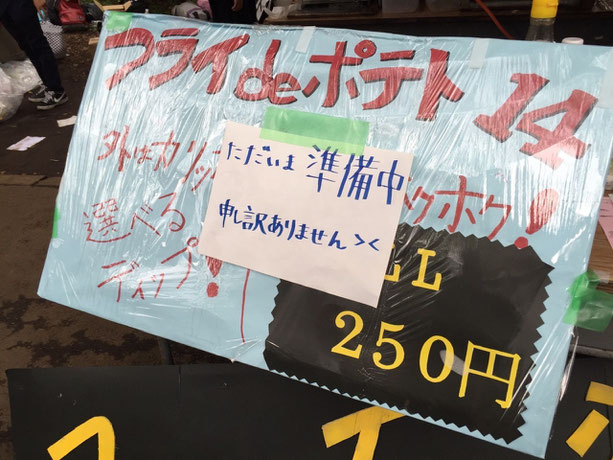 フライdeポテト 14
外はカリッ
ただいま 準備中
申し訳ありません ><
クホク!
選べる
ディップ!
LL
250円